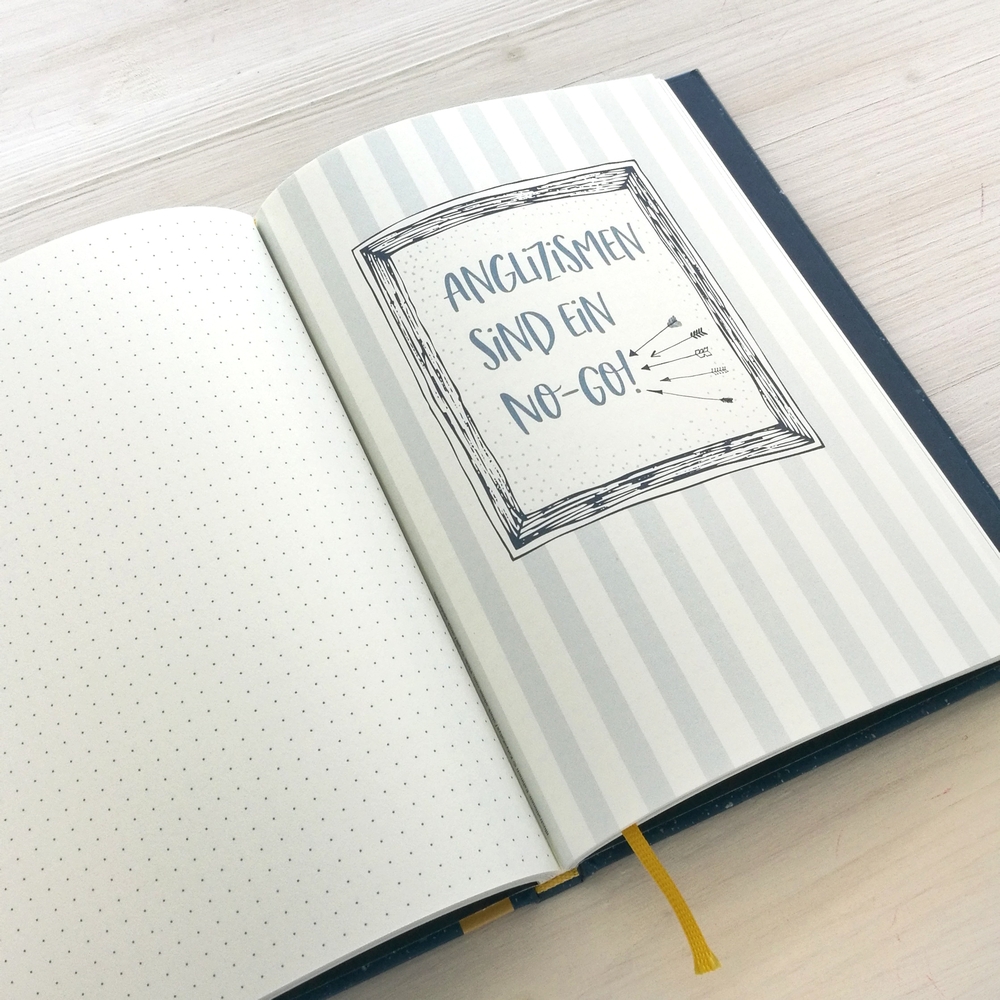 ANGLiZiSMEN
SiND EiN
NO-GO!